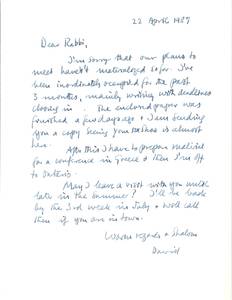 22 April 1987
Dear Rabbi,
I'm sorry that our plans to
meet haven't materialized so far. I've
been inordinately occupied for the past
3 months, mainly writing with deadlines
closing in. The enclosed paper was
finished a few days ago & I am sending
you a copy seeing is almost
here.
After this I have to prepare material
for a conference in Greece & then I'm off
to
May I leave a visit with you until
late in the summer? I'll be back
by the 3rd week in July & will call
then if you are in town.
Warm regards & Shalom
David